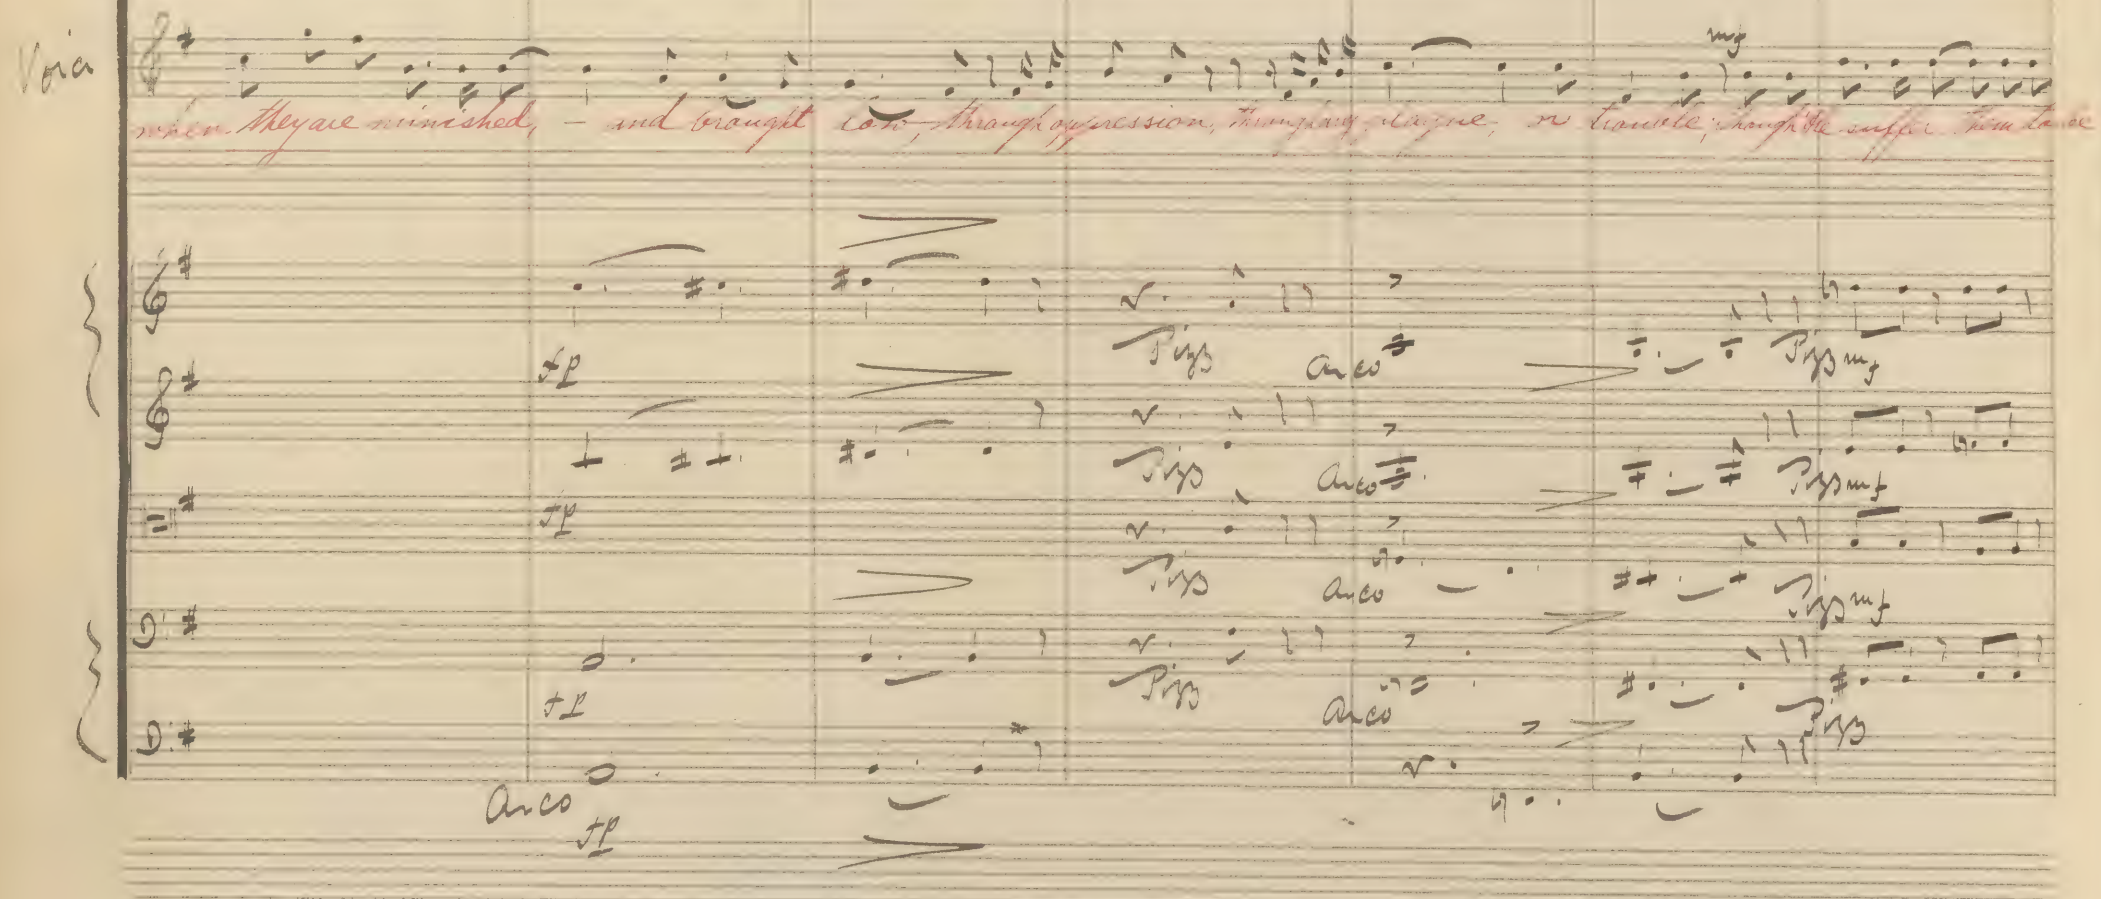 mf
Voice
when they are minished, - and brought low, through oppression, through any plague, or trouble; though He suffer them to be
fp
Pizz Arco Pizz mf
fp
Pizz Arco Pizz mf
Pizz Arco Pizz mf
fp
Pizz Arco Pizz
Arco
fp